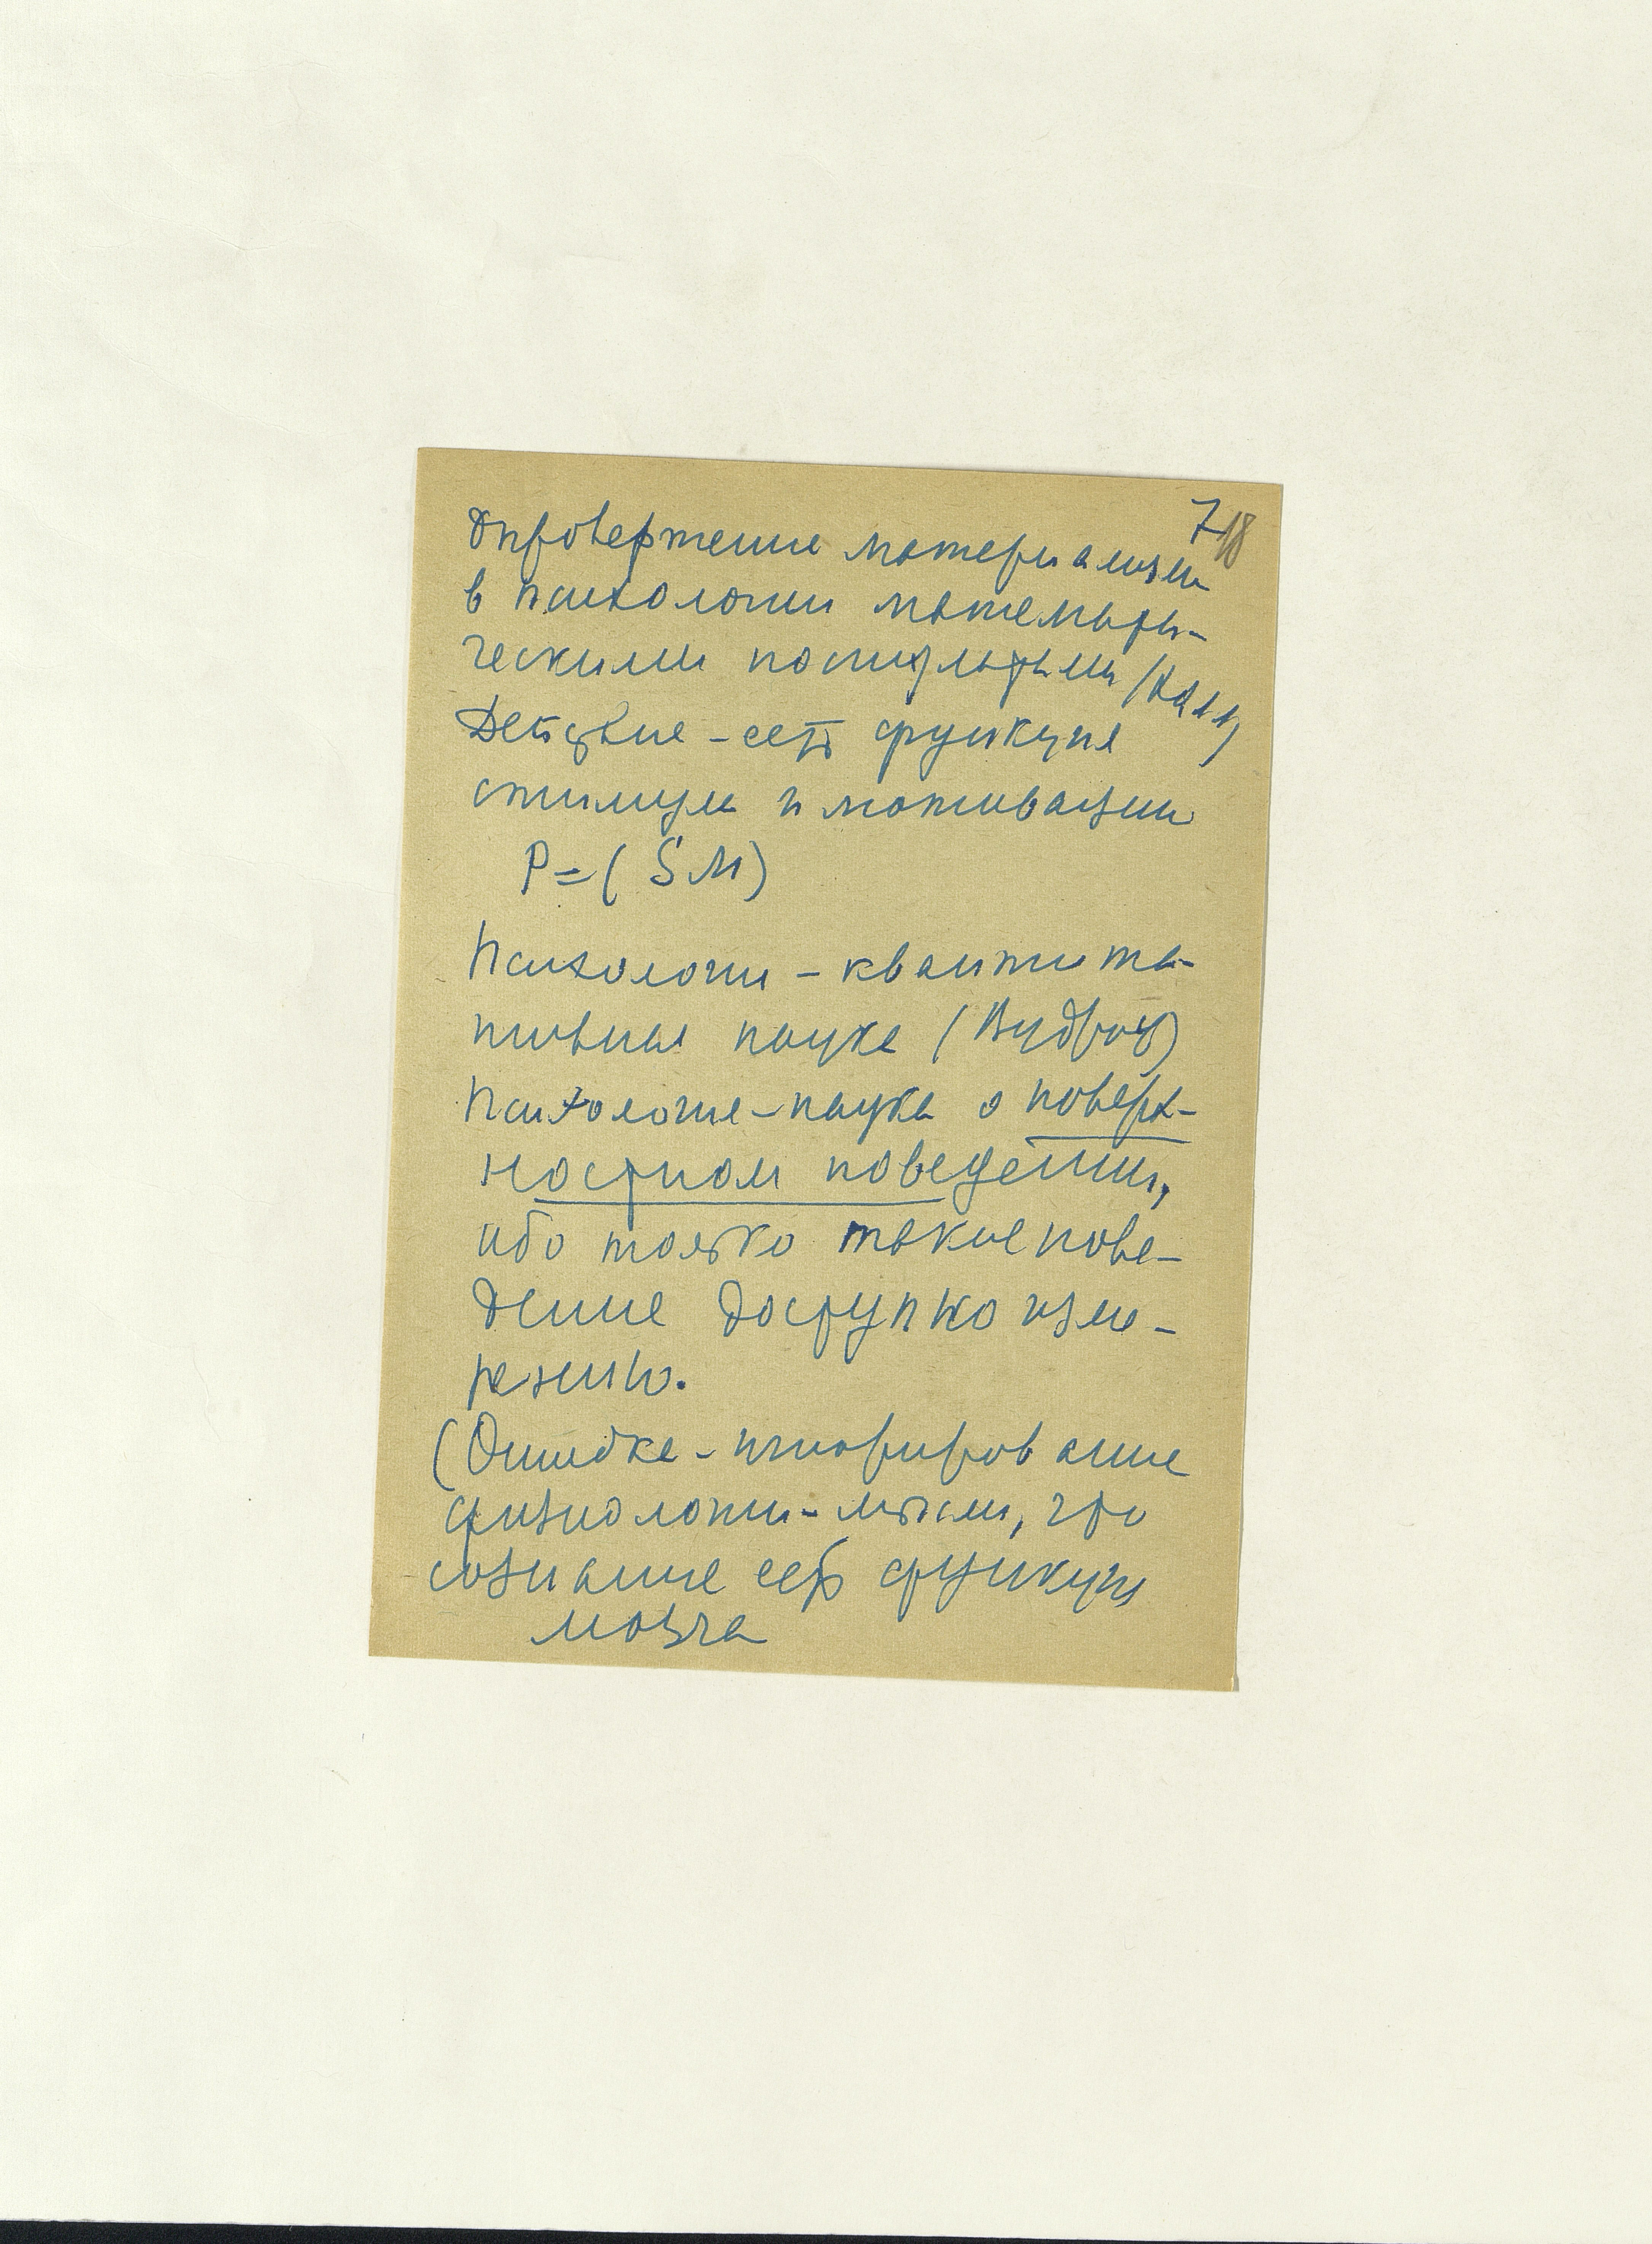 7 18
Опровержение материализма
в психологии математи-
ческими постулатами (Халл)
Действие - есть функция
стимула и мотивации
P = ( S M )
Психология - квантита-
тивная наука (Вудроу)
Психология - наука о поверх-
ностном поведении,
ибо только такое пове-
дение доступно изме-
рению.
(Ошибка - игнорирование
физиологии - мысли, что
сознание есть функция
мозга